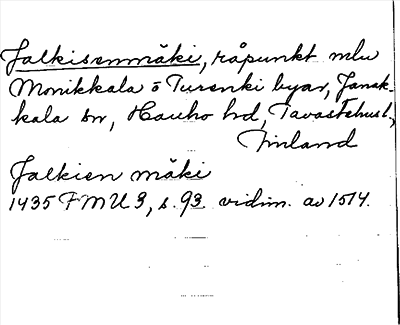 Jalkisenmäki, råpunkt mlu
Monikkala o Turenki byar, Janak-
kala sn, Hauho hd, Tavastehusl.,
Finland
Jalkien mäki
1435 FMU 3, s. 93 vidim. av 1514.